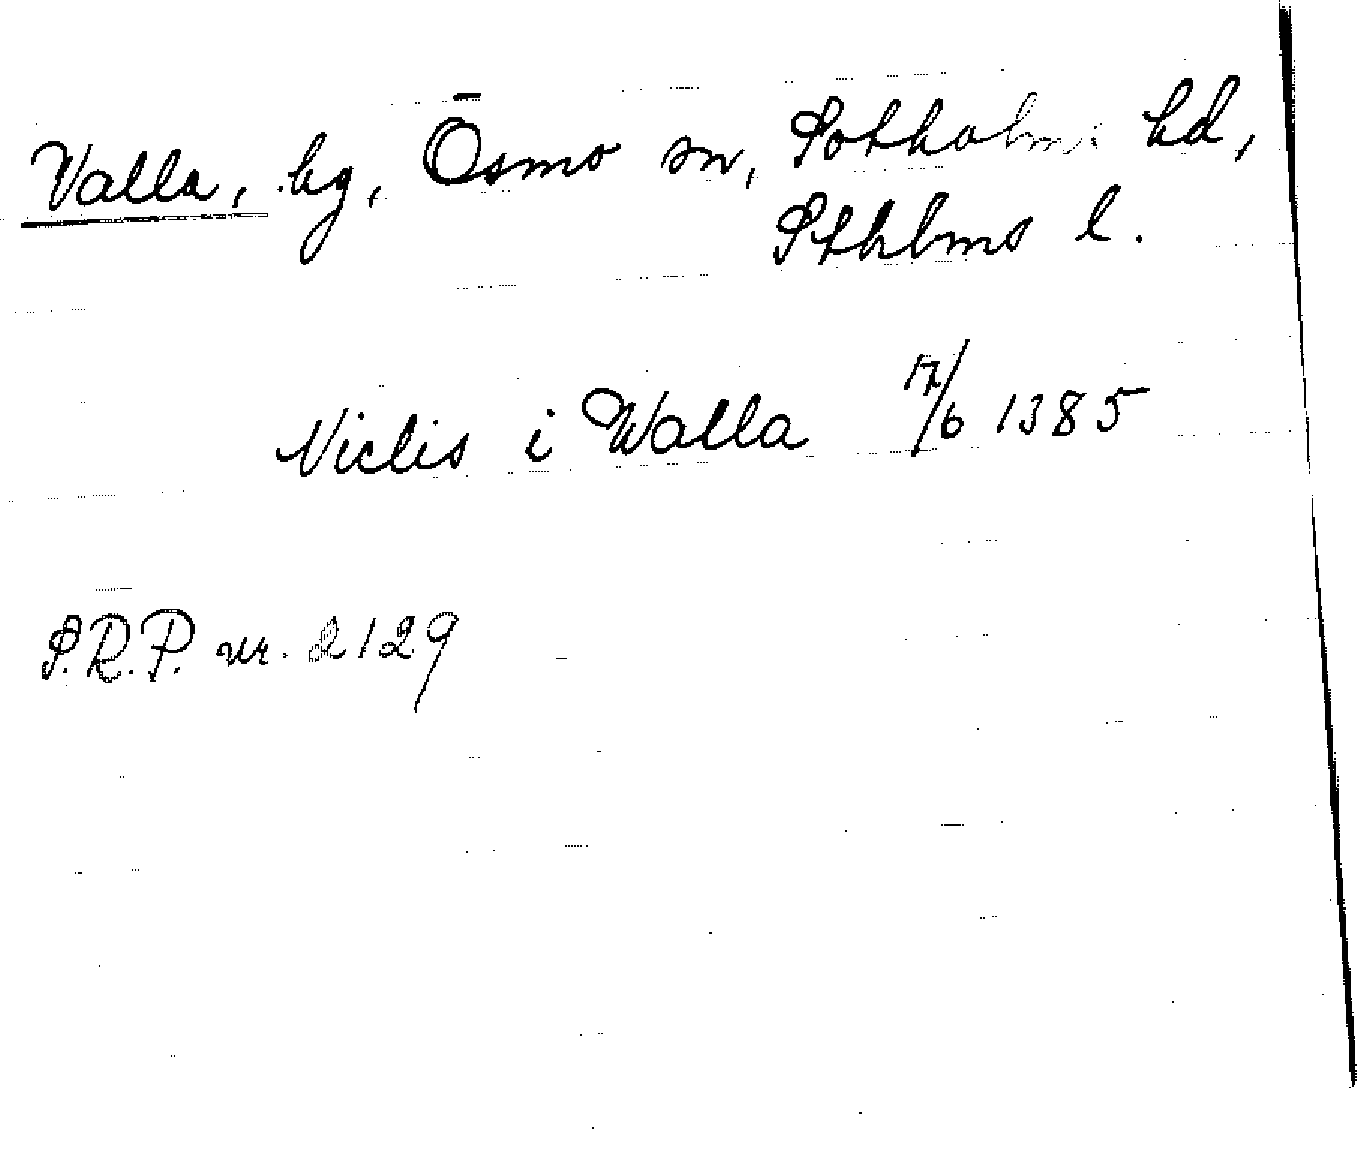 Valla, by, Ösmo sn, Sotholms hd,
Sthlms l.
Niclis i Walla 17/6 1385
S.R.P. nr. 2129